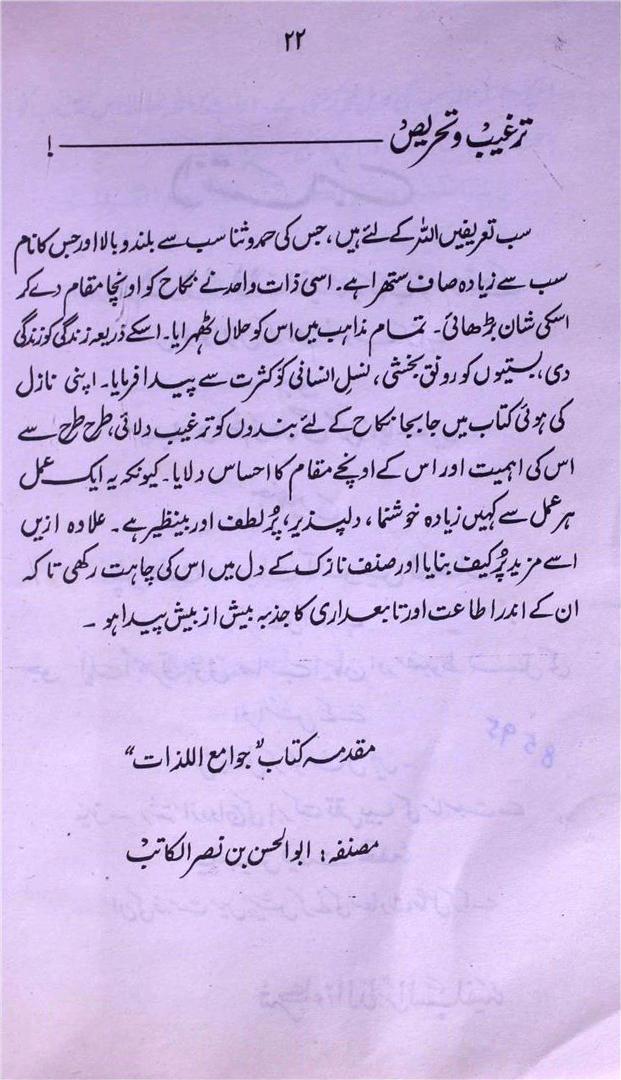 ۲۲
ترغیب و تحریص ——— !
سب تعریفیں اللہ کے لئے ہیں، جس کی حمد و ثنا سب سے بلند و بالا اور جس کا نام
سب سے زیادہ صاف ستھرا ہے۔ اسی ذات واحد نے نکاح کو اونچا مقام دے کر
اسکی شان بڑھائی۔ تمام مذاہب میں اس کو حلال ٹھہرایا۔ اسکے ذریعہ زندگی کو زندگی
دی، بستیوں کو رونق بخشی، نسل انسانی کو کثرت سے پیدا فرمایا۔ اپنی نازل
کی ہوئی کتاب میں جا بجا نکاح کے لئے بندوں کو ترغیب دلائی، طرح طرح سے
اس کی اہمیت اور اس کے اونچے مقام کا احساس دلایا۔ کیونکہ یہ ایک عمل
ہر عمل سے کہیں زیادہ خوشنما، دلپذیر، پُر لطف اور بینظیر ہے۔ علاوہ ازیں
اسے مزید پُر کیف بنایا اور صنف نازک کے دل میں اس کی چاہت رکھی تا کہ
ان کے اندر اطاعت اور تابعداری کا جذبہ بیش از بیش پیدا ہو ۔
مقدمہ کتاب "جوامع اللذات"
مصنفہ: ابوالحسن بن نصر الکاتب